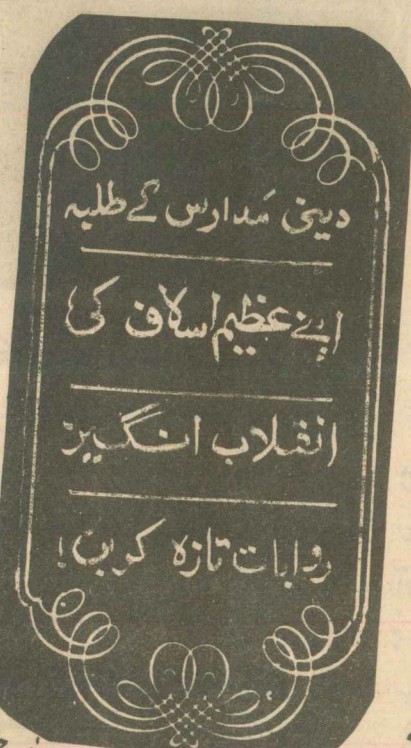 دینی مَدارس کے طلبہ
اپنے عظیم اسلاف کی
انقلاب انگیز
روایات تازہ کریں!